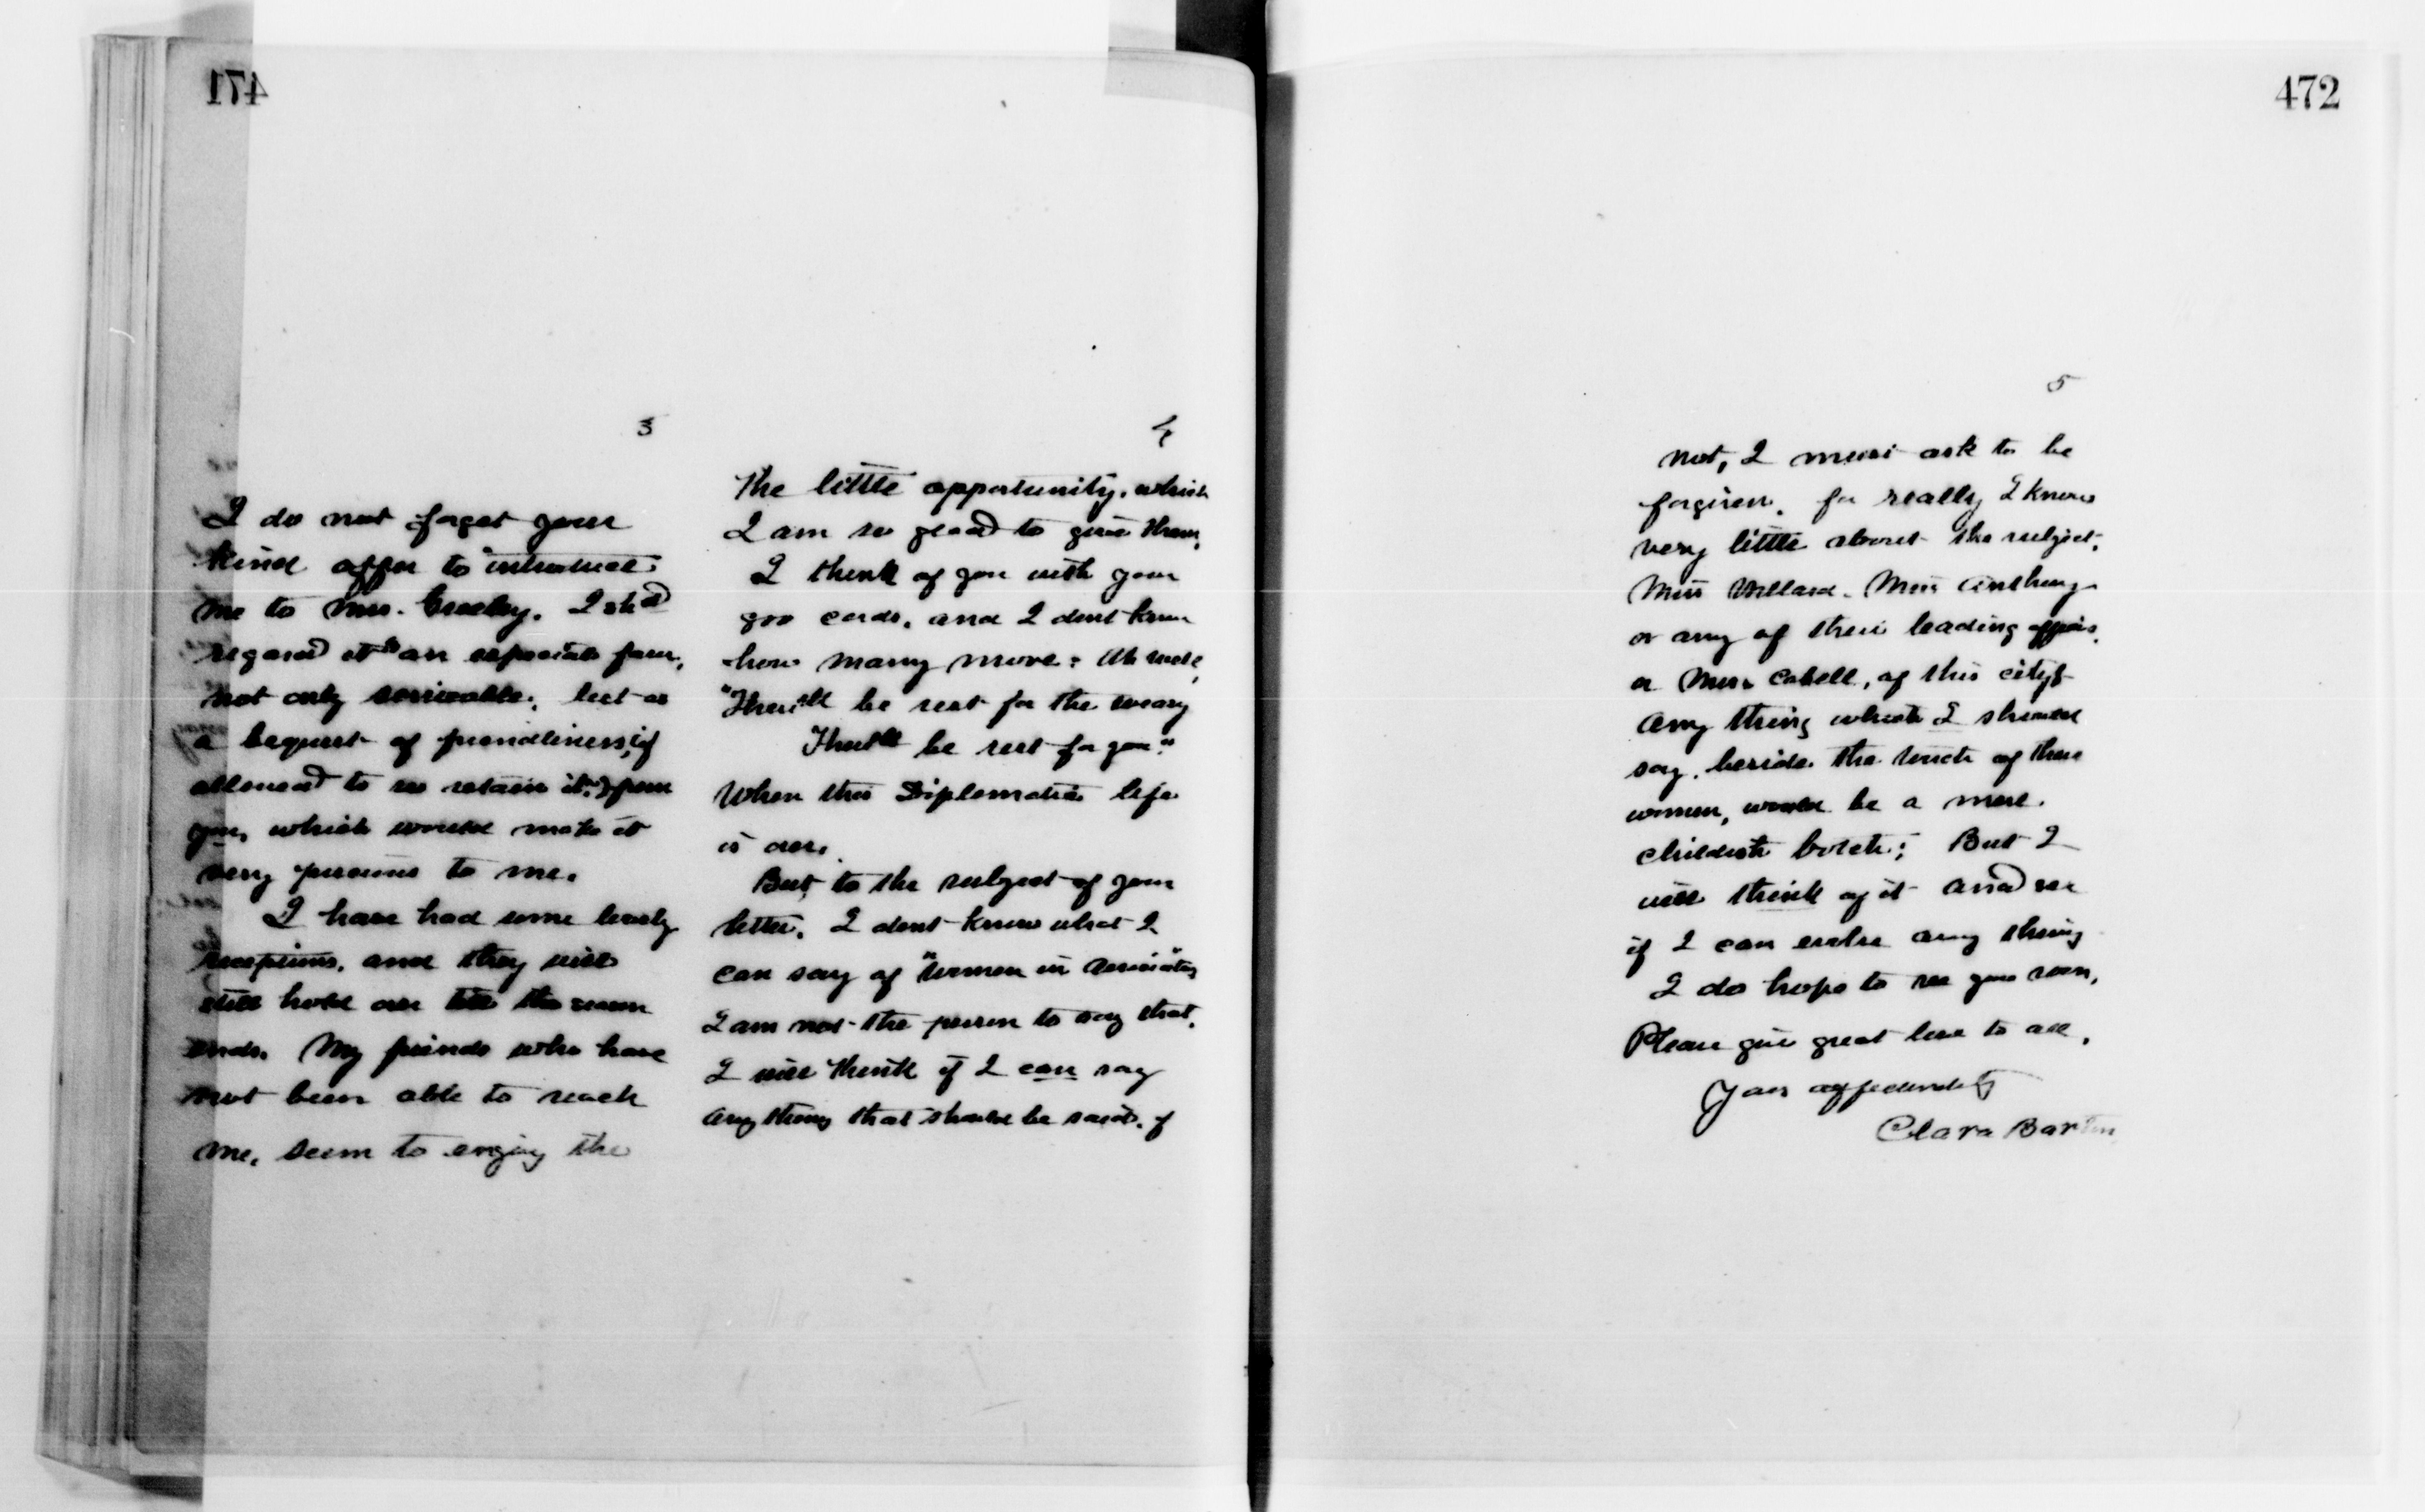 471
3
I do not forget your
kind offer to "introduce"
me to Mrs. Greeley. I shd
regard it as an especial favor,
not only serviceable, but as
a bequest of friendliness, (if
allowed to so retain it) from
you, which would make it
very precious to me.
I have had some lovely
receptions, and they will
still hold on till the season
ends. My friends who have
not been able to reach
me, seem to enjoy the
4
the little opportunity, which
I am so glad to give them.
I think of you with your
900 cards, and I dont know
how many more: Ah well,
"There'll be rest for the weary
There'll be rest for you"
When this Diplomatic life
is over.
But, to the subject of your
letter. I dont know what I
can say of "Women in
I am not the person to say that.
I will think if I can say
any thing that should be said. if
472
5
not, I must ask to be
forgiven. for really I know
very little about the subject.
Miss Willard. Miss Anthony
or any of their leading
or Mrs. Cabell, of this city,
any thing which I should
say, beside the touch of these
women, would be a mere
childish botch; But I
will think of it and see
if I can evolve any thing
I do hope to see you soon,
Please give great love to all,
Yours affectionately
Clara Barton